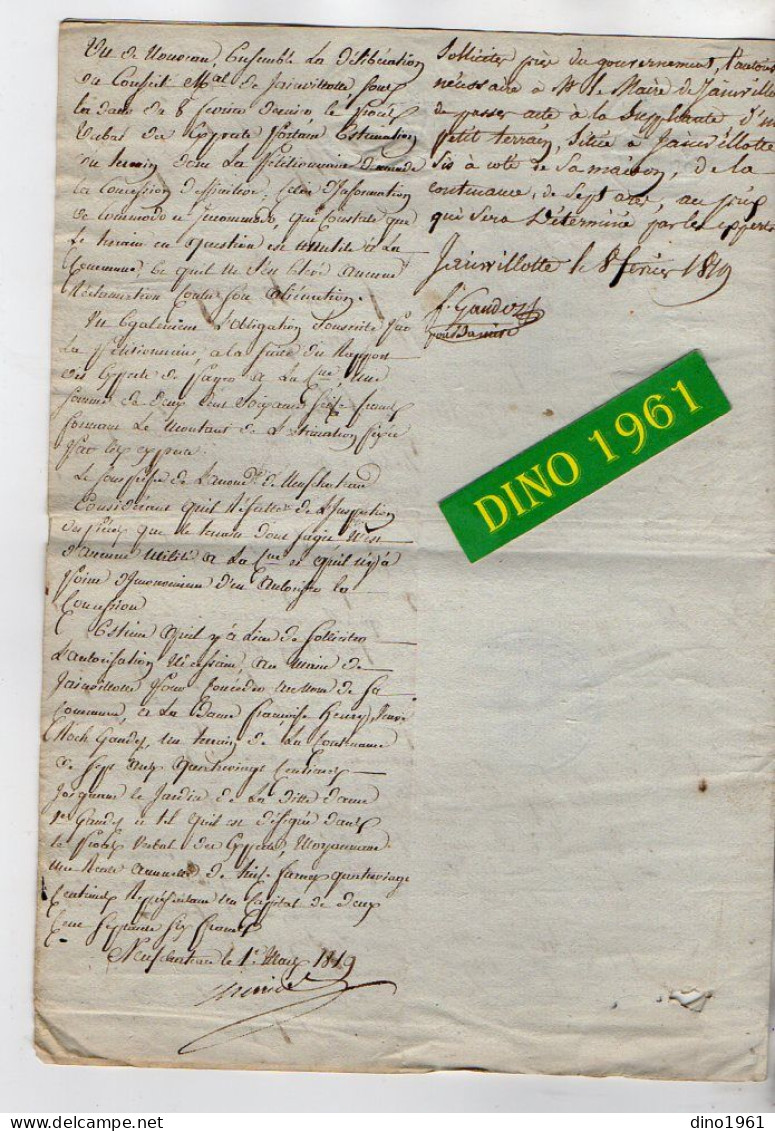 Vu de Nouveau, Ensemble la délibération
du Conseil Mal de Jainvillotte sous
la date du 8 fevrier dernier le procès
Verbal des Experts portant Estimation
du terrain dont La Pétitionnaire demande
la Concession définitive, celui d'Information
de Commodo et incommodo, qui Constate que
Le terrain en question est inutile à La
Commune, et qu'il ne s'en élève aucune
Réclamation Contre son aliénation.
Vu Egalement L'obligation Souscrite par
La Pétitionnaire, a la suite du Rapport
des Experts de payer a La Cne, Une
somme de deux Cent Soixante Seize francs
formant Le montant de L'Estimation fixée
par les experts.
Le sous préfet de L'arrondt de Neufchateau
Considérant qu'il Résulte de L'Inspection
des pièces que le terrain dont s'agit N'est
d'aucune utilité a La Cne et qu'il n'y a
point d'inconvénient d'en Autoriser la
Concession
Estime qu'il y a Lieu de Solliciter
L'autorisation Nécessaire, au maire de
Jainvillotte pour Concéder au nom de sa
Commune, a La Dame françoise Henry, Veuve
Roch Gaudez, un terrain de La Contenance
de Sept ares quatrevingt Centiares
Joignant le Jardin de La ditte dame
Ve Gaudez et tel qu'il est désigné dans
le procès Verbal des Experts, Moyennant
une Rente annuelle de treize francs quatrevingt
Centimes Représentant un Capital de deux
Cent Septante Six francs
Neufchateau le 1er Mars 1819
Solliciter près du gouvernement, l'autoris
nécessaire à Mr le Maire de Jainvillo
de passer acte à la Suppliante d'un
petit terrain, Situé à Jainvillotte
Sis à coté de Sa maison, de la
contenance, de Sept ares, au prix
qui Sera Déterminé par les experts
Jainvillotte le 8 fevrier 1819
f. Gaudez
DINO 1961
dino1961